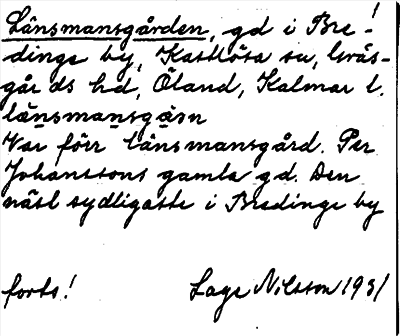 Länsmansgården, gd i Bre-!
dinge by, Kastlösa sn, Gräs-
gårds hd, Öland, Kalmar l.
länsmansgåsn
Var förr länsmansgård. Per
Johanssons gamla gd. Den
näst sydligaste i Bredinge by
forts! Lage Nilsson 1931